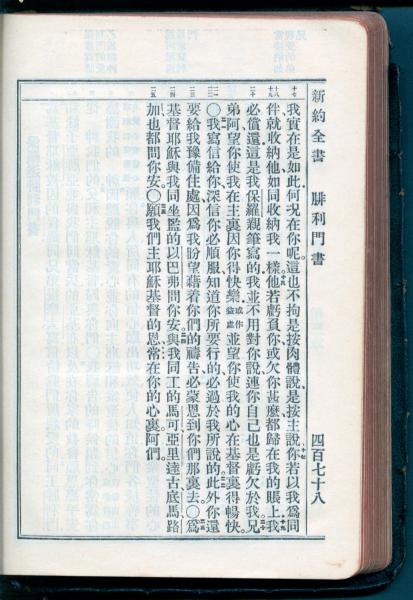 新約全書 腓利門書 四百七十八
我實在是如此何况在你呢。這也不拘是按肉體說是按主說你若以我爲同
伴就收納他如同收納我一樣他若虧負你或欠你甚麽都歸在我的賬上我
必償還這是我保羅親筆寫的我並不用對你說連你自己也是虧欠於我兄
弟阿望你使我在主裏因你得快樂或作益處並望你使我的心在基督裏得暢快。
〇我寫信給你深信你必順服知道你所要行的必過於我所說的此外你還
要給我豫備住處因爲我盼望藉着你們的禱告必蒙恩到你們那裏去〇爲
基督耶穌與我同坐監的以巴弗問你安與我同工的馬可亞里達古底馬路
加也都問你安〇願我們主耶穌基督的恩常在你的心裏阿們。